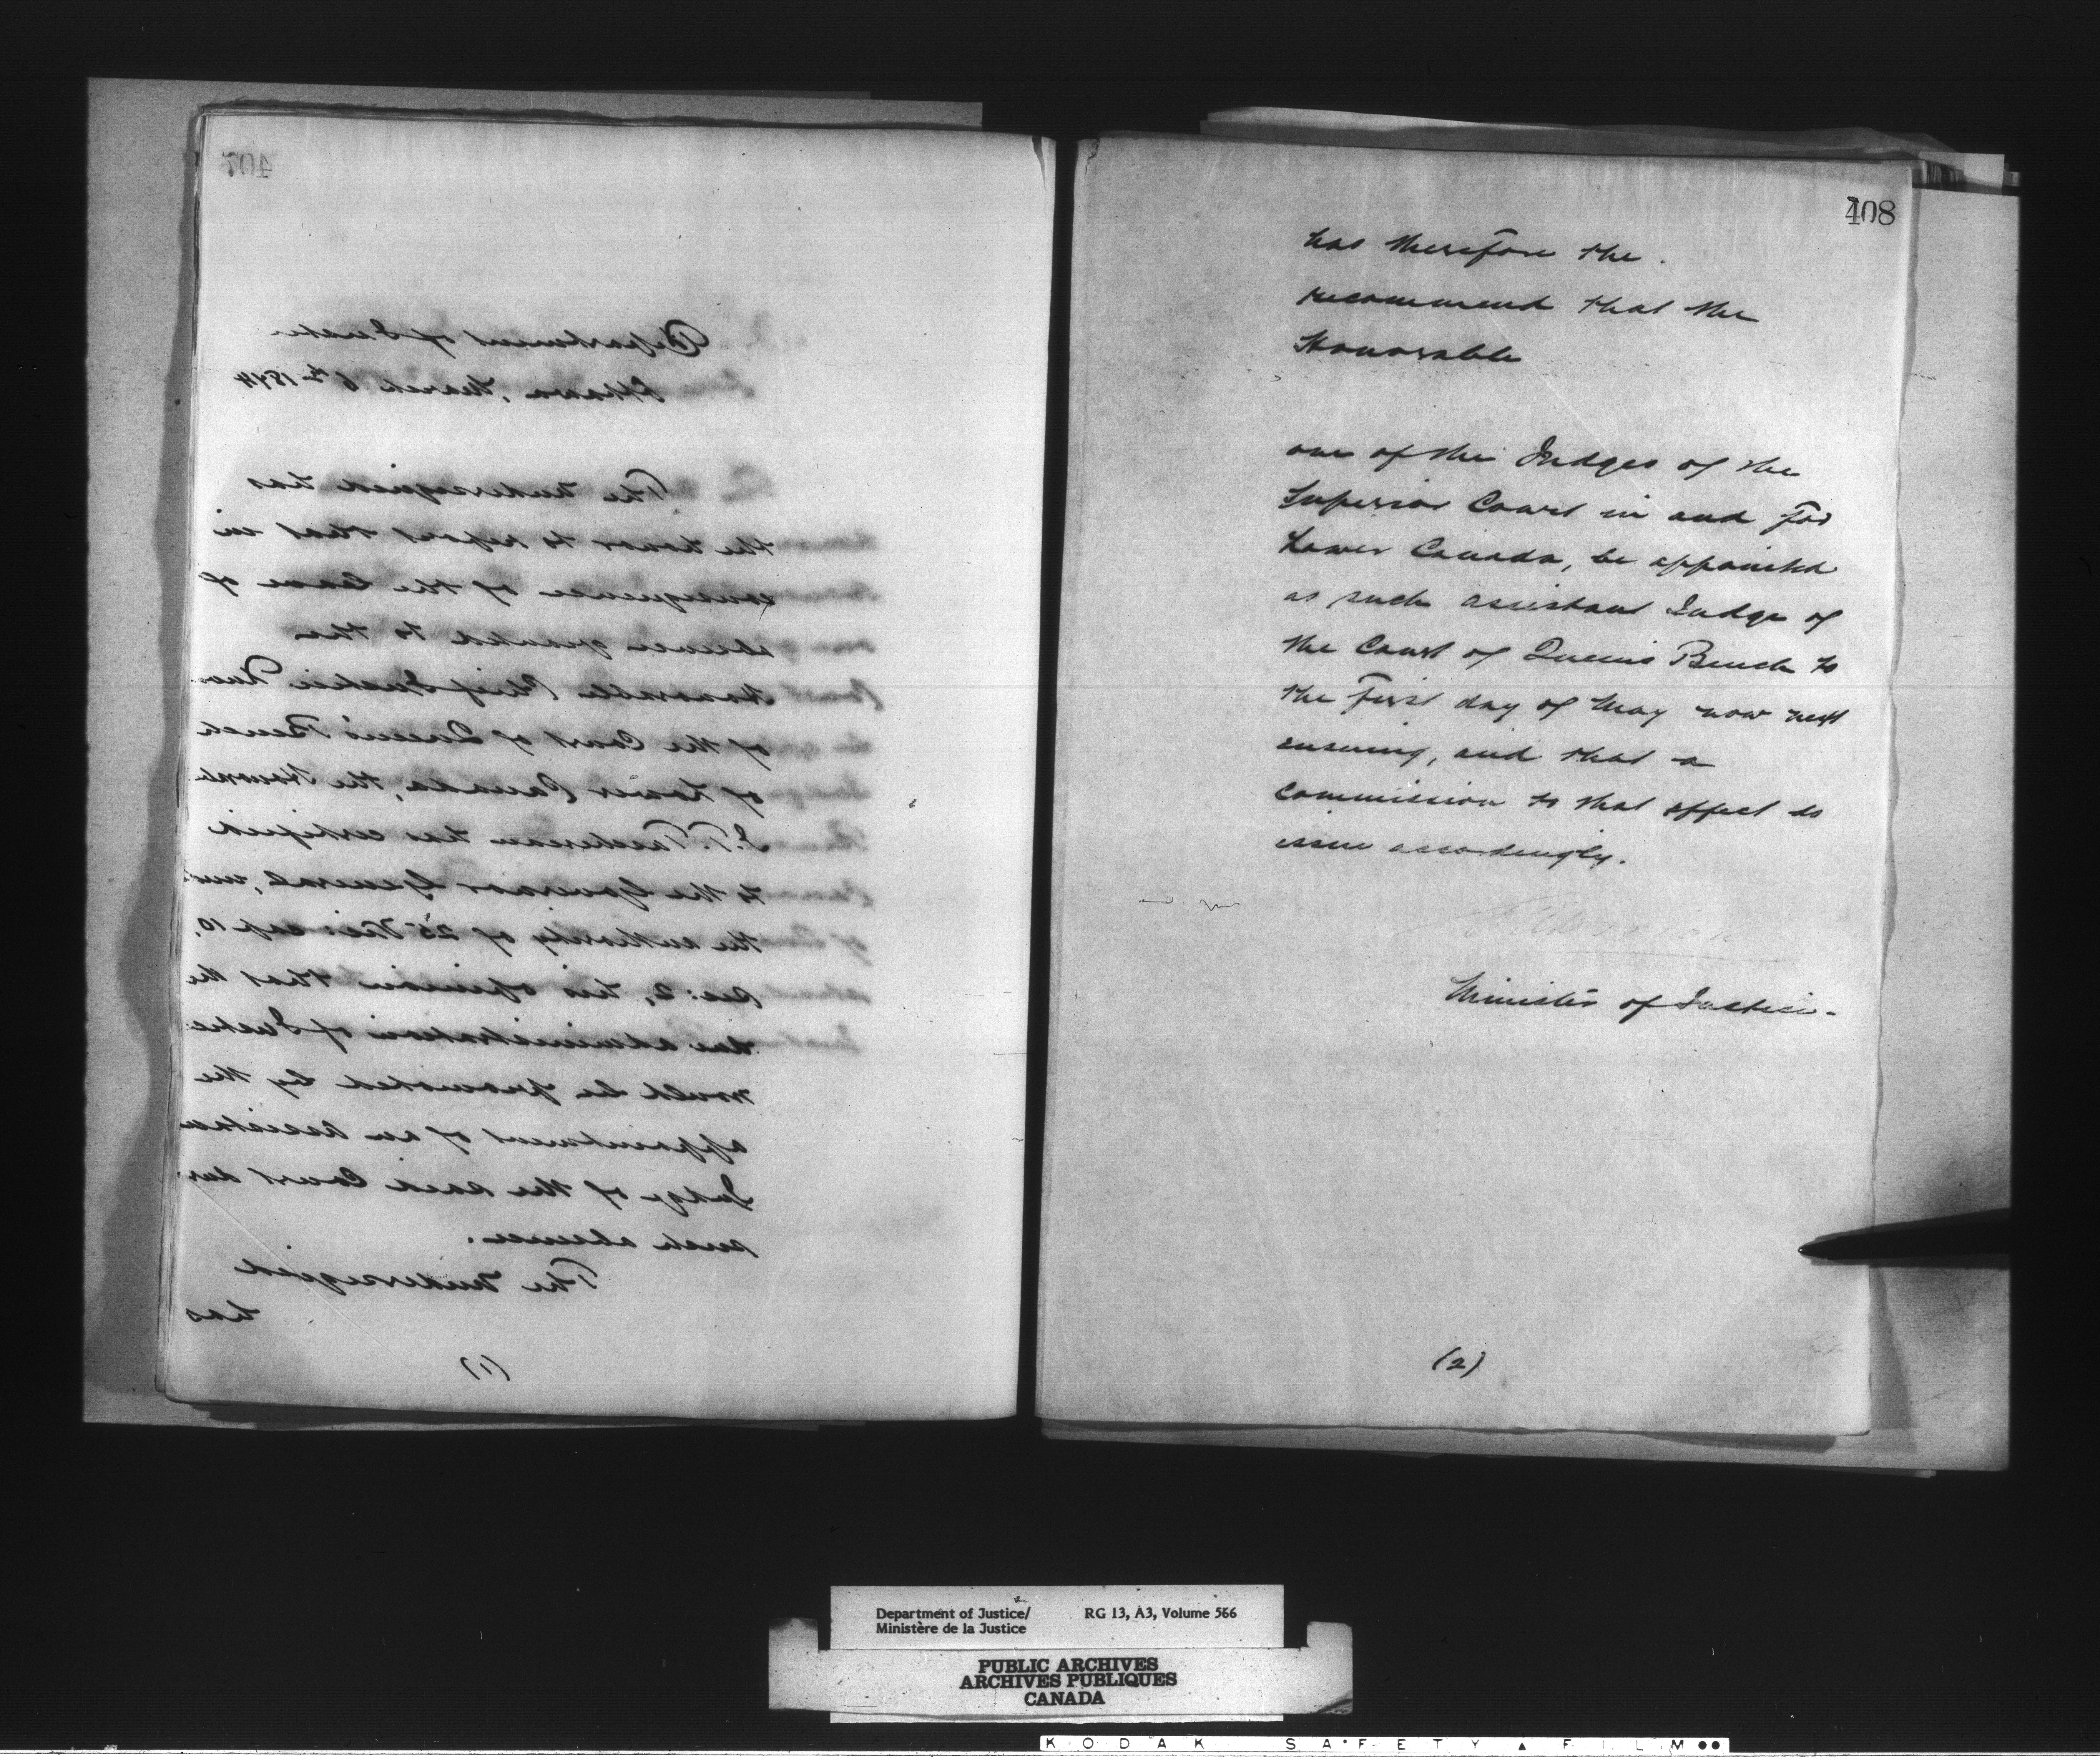 407
Department of Justice
Ottawa, March 6th 1874
The undersigned has
the honor to report that in
consequence of the leave of
absence granted to the
Honorable Chief Justice
of the Court of Queen's Bench
of Lower Canada, the Honorable
J. T. Taschereau has certified
to the Governor General, under
the authority of 25 Vic: cap 10,
Sec: 2, his opinion that the
due administration of Justice
would be promoted by the
appointment of an assistant
Judge of the said Court during
such absence.
The undersigned
has
(1)
408
has therefore the
recommend that the
Honorable
one of the Judges of the
Superior Court in and for
Lower Canada, be appointed
as such assistant Judge of
the Court of Queens Bench to
the first day of May now next
ensuing, and that a
Commission to that effect do
issue accordingly.
Minister of Justice.
(2)
Department of Justice/ RG 13, A3, Volume 566
Ministère de la Justice
PUBLIC ARCHIVES
ARCHIVES PUBLIQUES
CANADA
KODAK SAFETY FILM